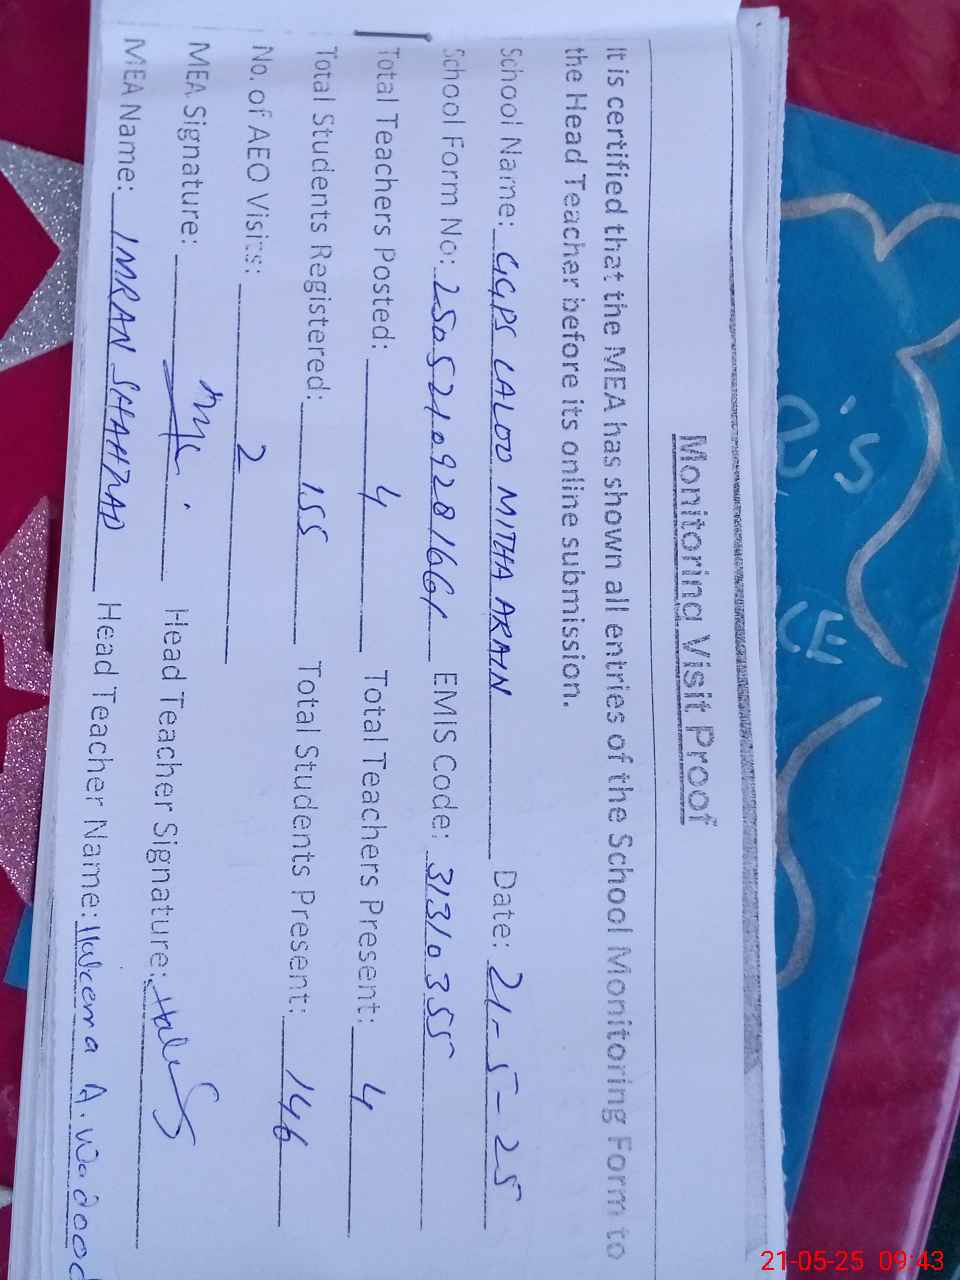 Monitoring Visit Proof
It is certified that the MEA has shown all entries of the School Monitoring Form to
the Head Teacher before its online submission.
School Name: GGPS LALOD MITHA ARAIN Date: 21-5-25
School Form No: 2505210928166 EMIS Code: 31310355
Total Teachers Posted: 4 Total Teachers Present: 4
Total Students Registered: 155 Total Students Present: 146
No. of AEO Visits: 2
MEA Signature: Head Teacher Signature:
MEA Name: IMRAN SHAHZAD Head Teacher Name: Haleema A. Wadood
'S
CE
21-05-25 09:43